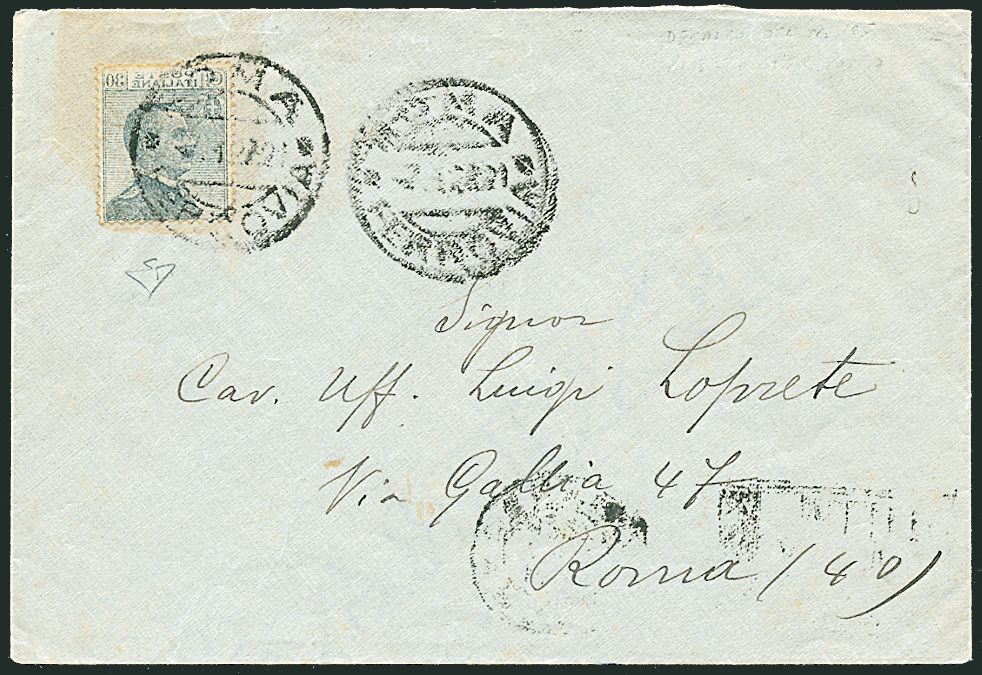 POSTE
ITALIANE
30
ROMA
FERROVIA
ROMA
FERROVIA
Signor
Cav. Uff. Luigi Loprete
Via Gallia 47
Roma (40)